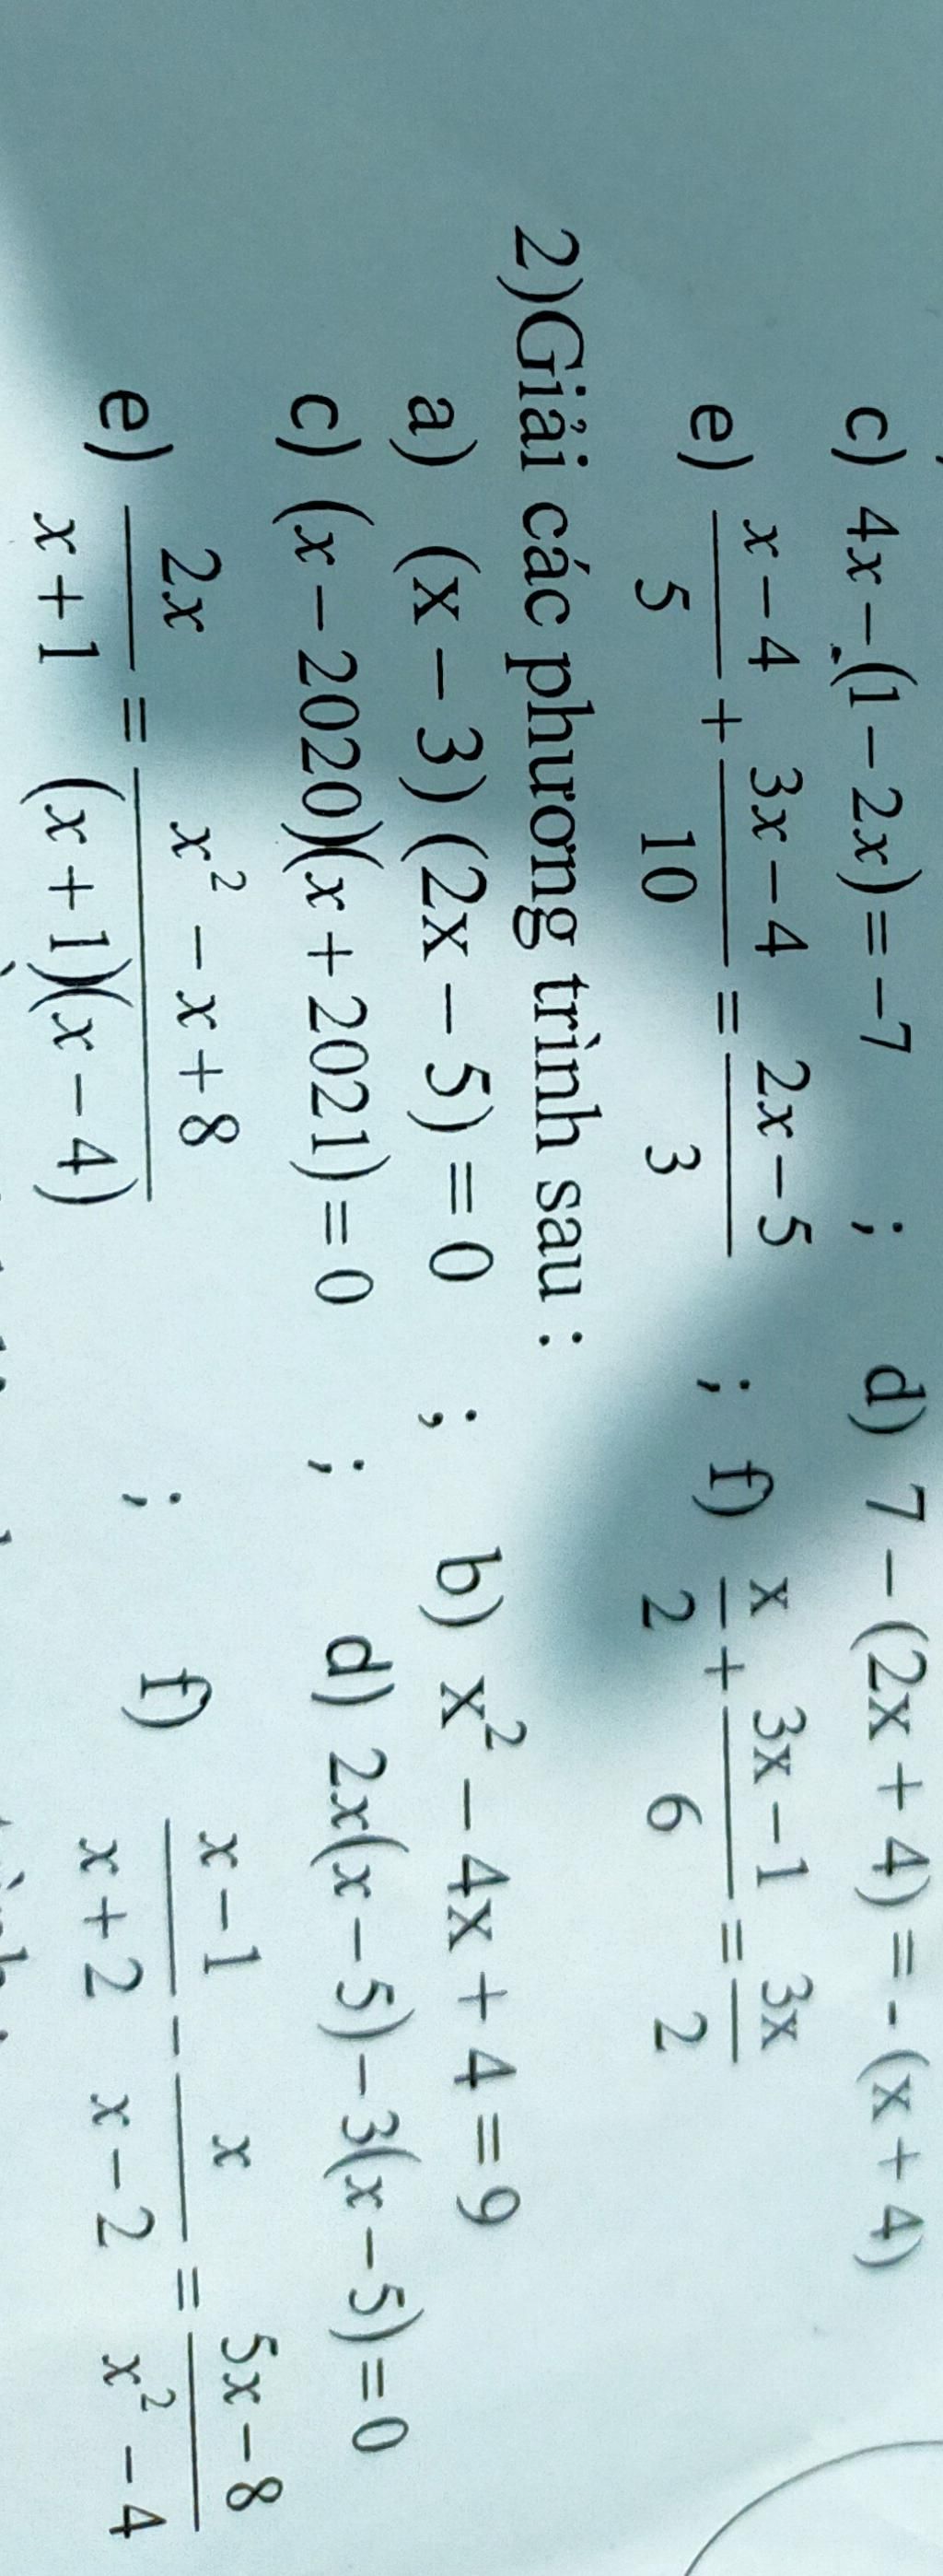 c) 4x – (1 – 2x) = –7 ; d) 7 – (2x + 4) = - (x + 4)
e) \frac{x-4}{5} + \frac{3x-4}{10} = \frac{2x-5}{3} ; f) \frac{x}{2} + \frac{3x-1}{6} = \frac{3x}{2}
2)Giải các phương trình sau :
a) (x – 3) (2x – 5) = 0 ; b) x² – 4x + 4 = 9
c) (x – 2020)(x + 2021) = 0 ; d) 2x(x – 5) – 3(x – 5) = 0
e) \frac{2x}{x+1} = \frac{x²-x+8}{(x+1)(x-4)} ; f) \frac{x-1}{x+2} - \frac{x}{x-2} = \frac{5x-8}{x²-4}